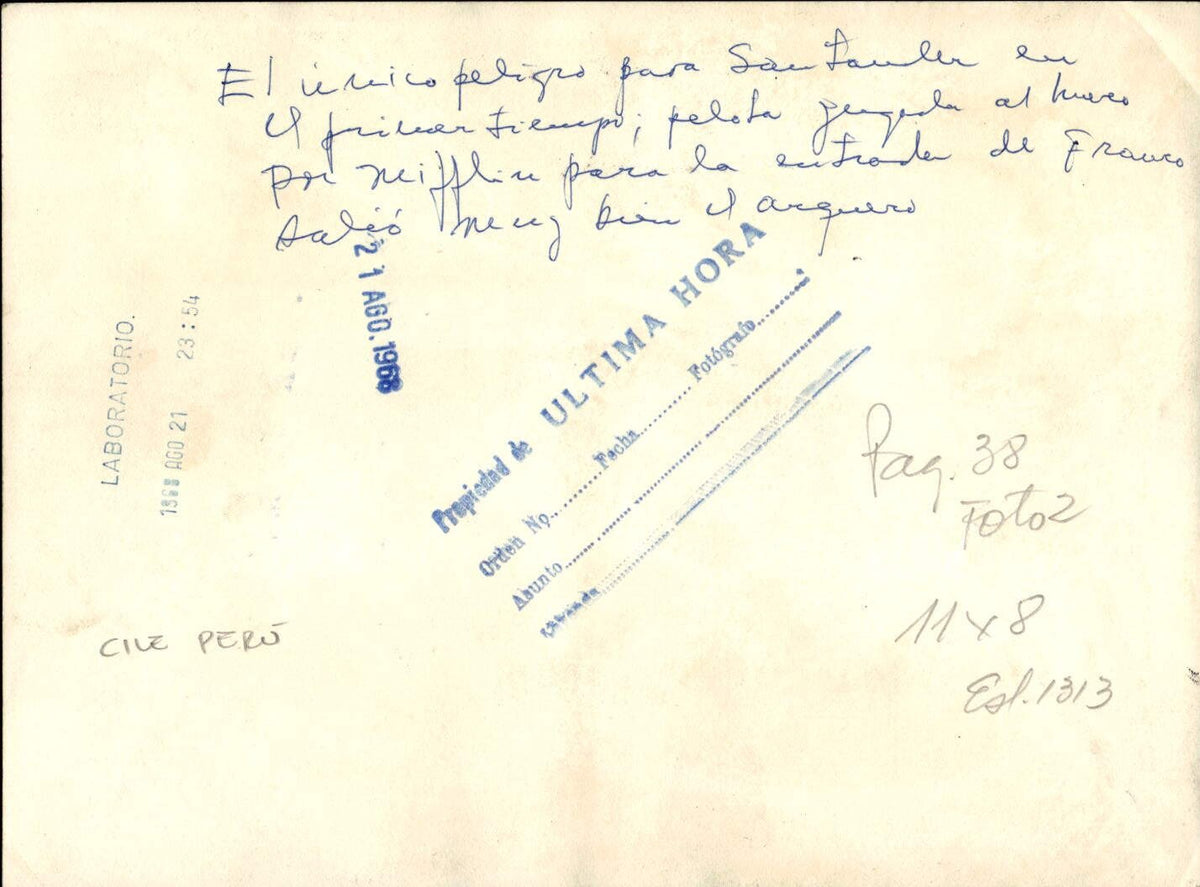 El único peligro para Santander en
el primer tiempo; pelota jugada al hueco
por Mifflin para la entrada de Franco
salió muy bien el arquero
21 AGO. 1968
LABORATORIO.
1968 AGO 21 23:54
Propiedad de ULTIMA HORA
Orden No. Fecha Fotógrafo
Asunto
Pag. 38
Foto 2
11x8
Esl. 1313
CILE PERÚ